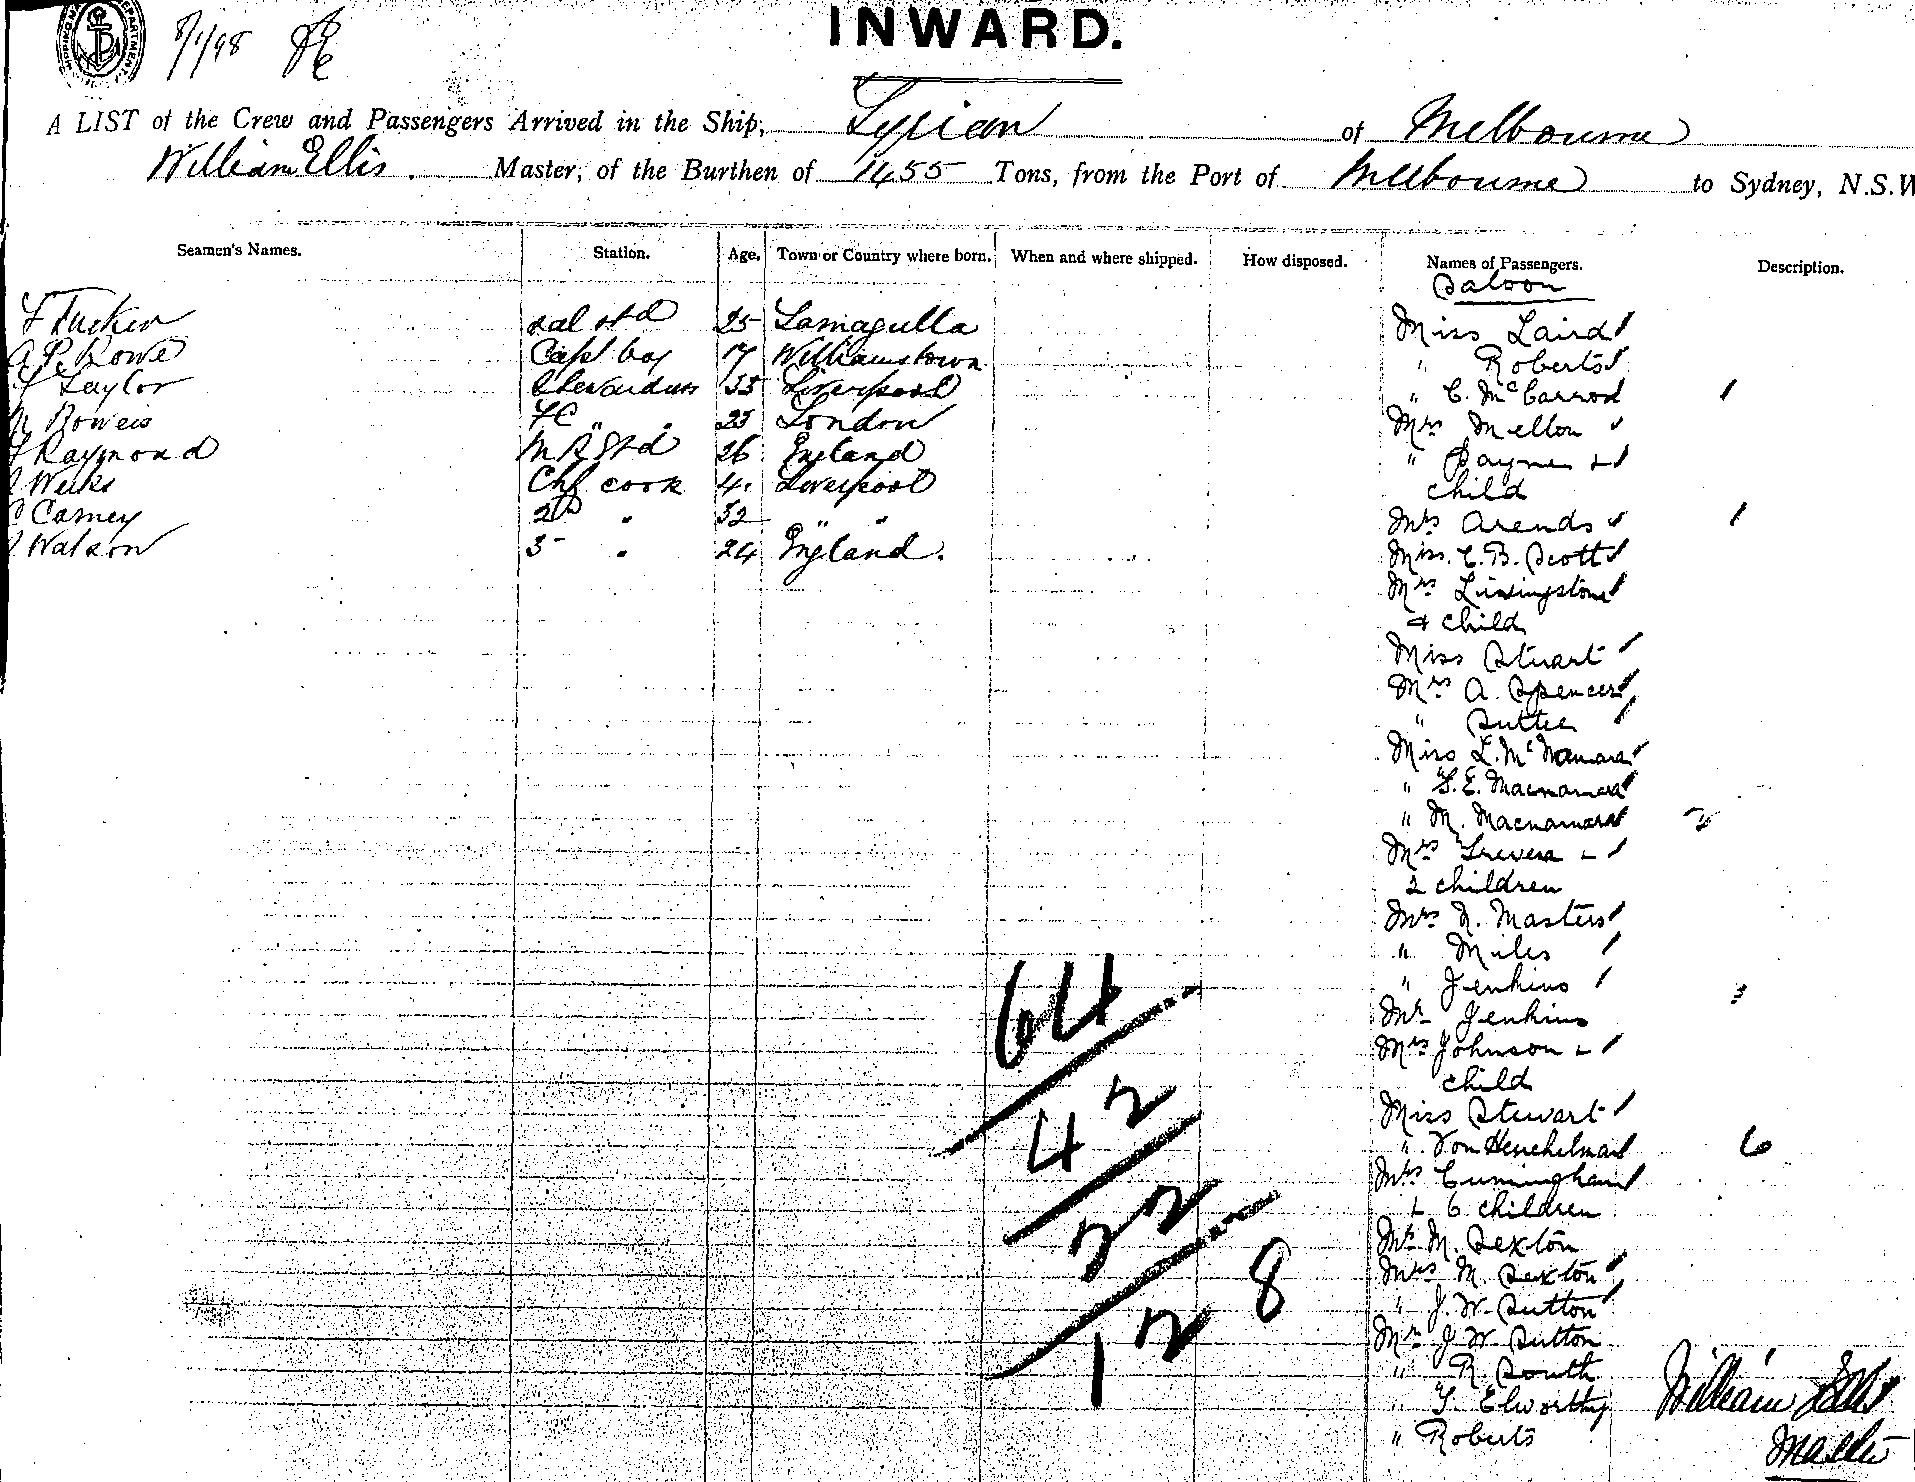 8/1/98
INWARD.
A LIST of the Crew and Passengers Arrived in the Ship, Tyrian of Melbourne
William Ellis. Master, of the Burthen of 1455 Tons, from the Port of Melbourne to Sydney, N.S.W
Seamen's Names. Station. Age. Town or Country where born. When and where shipped. How disposed. Names of Passengers. Description.
Saloon
F Tucker Sal std 25 Lamagulla Miss Laird
A P. Rowe Capt boy 17 Williamstown " Roberts
Taylor Stewardess 35 Liverpool " C. McCarrod 1
Bowers FC " " 23 London Mrs Mellon
F Raymond M R Std 26 England " Payne &
Weeks Chf cook 4. Liverpool child
C Carney 2D " 32 " " Mrs Arends 1
Watson 3 " 24 England. Miss. C. B. Scott
Mrs Livingstone
& child
Miss Stuart
Mrs A. Spencer
" Suttee
Miss L. McNamara
" G. E. Macnamara
" M. Macnamara 2
Mrs Trevena &
2 children
Mrs N. Masters
" Miles
" Jenkins 3
Mr Jenkins
Mrs Johnson &
child
Miss Stewart
" Von 6
Mrs Cunningham
& 6 children
Mr M. Sexton
Mrs M. Sexton
" J. W. Sutton
Mr J W. Sutton
" R. South
" T. Elworthy
" Roberts
64
42
22
128
William Ellis
Master